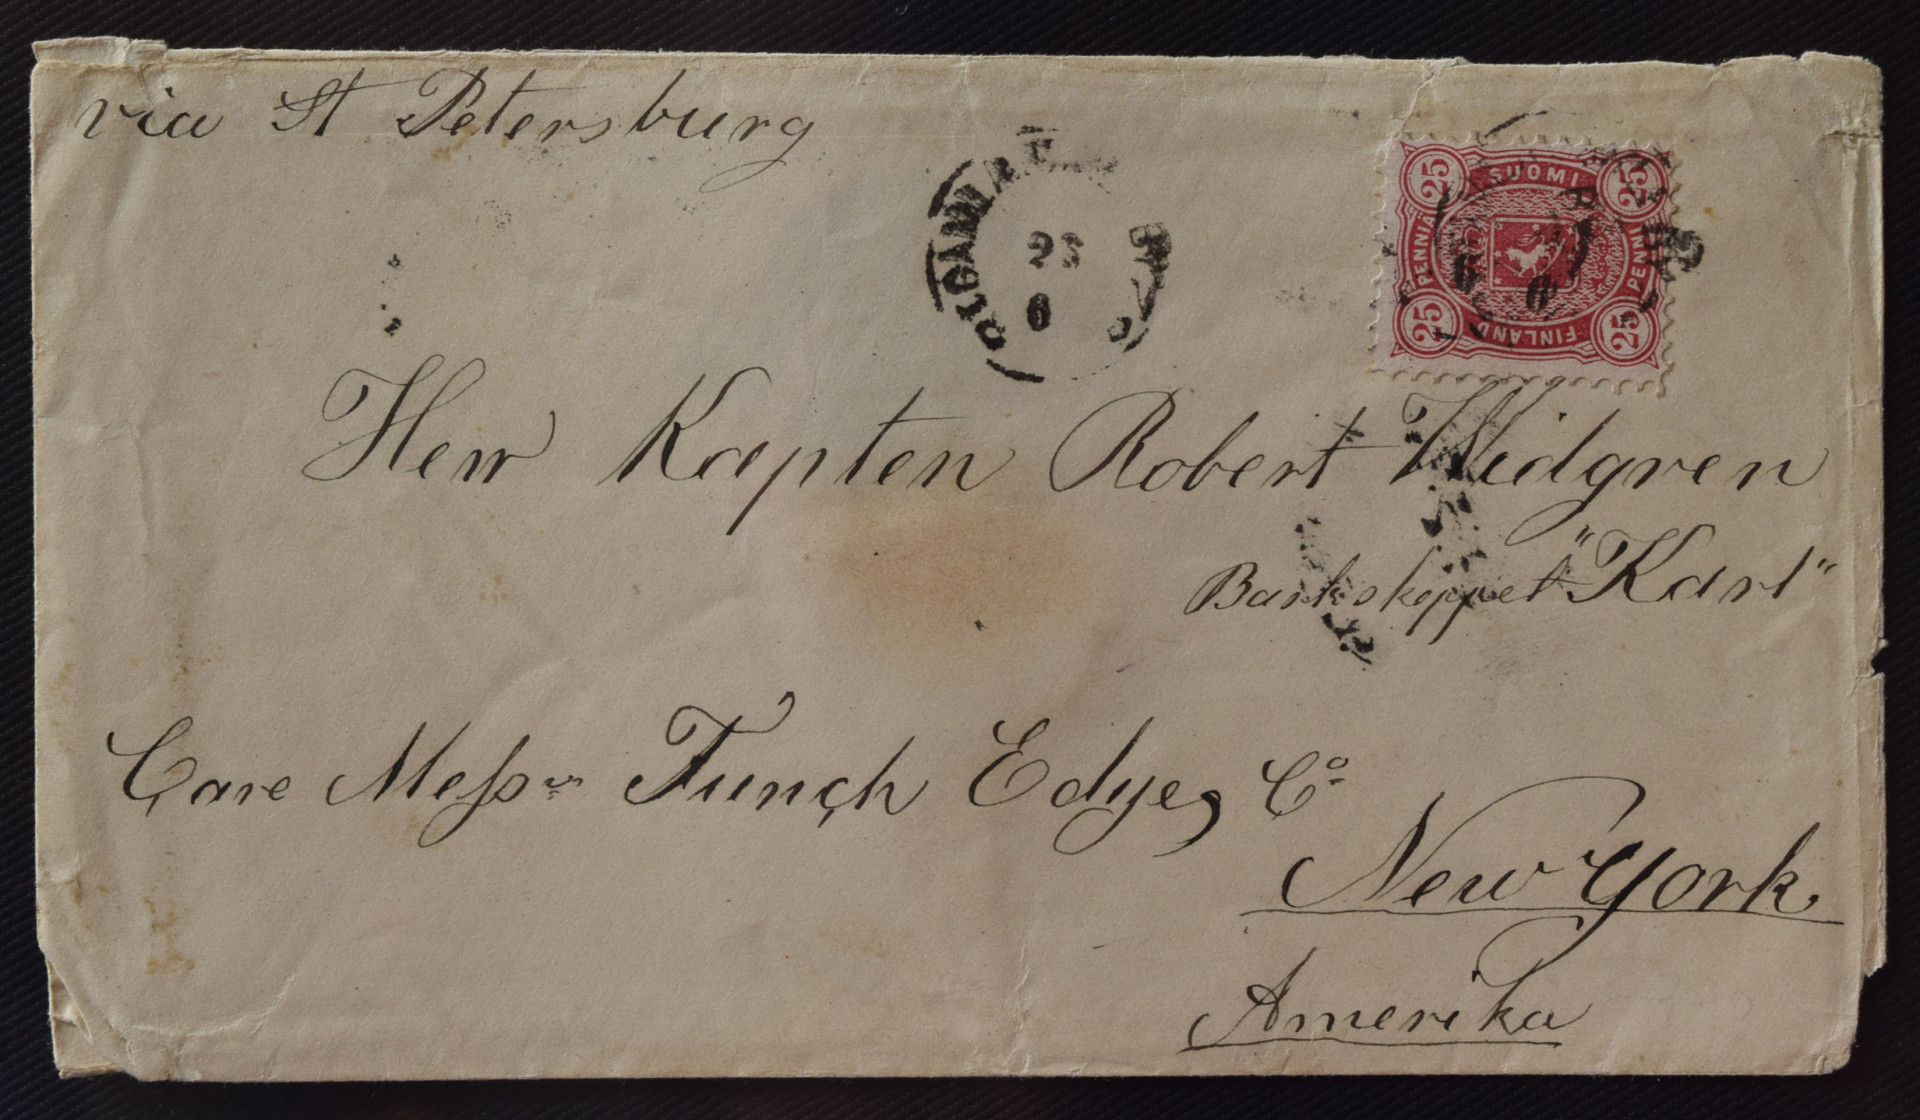 via St Petersburg
25 SUOMI 25
PENNIA PENNI
25 FINLAND 25
23
6
Herr Kapten Robert Widgren
Barkskeppet "Karl"
Care Messrs Funch Edye, Co
New York.
Amerika